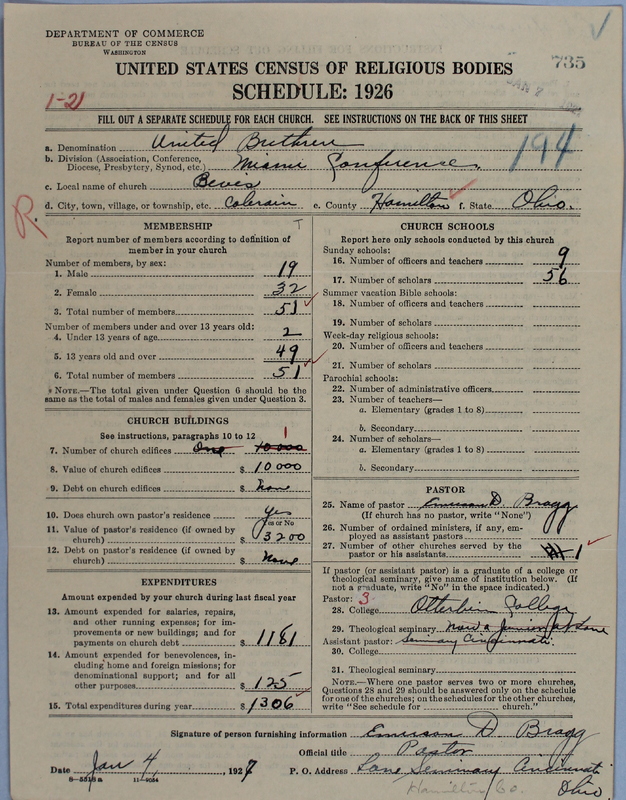 DEPARTMENT OF COMMERCE
BUREAU OF THE CENSUS
WASHINGTON
UNITED STATES CENSUS OF RELIGIOUS BODIES
735
SCHEDULE: 1926
1-21
FILL OUT A SEPARATE SCHEDULE FOR EACH CHURCH. SEE INSTRUCTIONS ON THE BACK OF THIS SHEET
194
a. Denomination United Brethren
b. Division (Association, Conference, Diocese, Presbytery, Synod, etc.) Miami Conference.
c. Local name of church Bevis
d. City, town, village, or township, etc. Colerain e. County Hamilton f. State Ohio.
R.
MEMBERSHIP
Report number of members according to definition of member in your church
Number of members, by sex:
1. Male 19
2. Female 32
3. Total number of members 51
Number of members under and over 13 years old:
4. Under 13 years of age 2
5. 13 years old and over 49
6. Total number of members 51
NOTE.—The total given under Question 6 should be the same as the total of males and females given under Question 3.
CHURCH BUILDINGS
See instructions, paragraphs 10 to 12
7. Number of church edifices One 10000 1
8. Value of church edifices $ 10000
9. Debt on church edifices $ None
10. Does church own pastor's residence? Yes
Yes or No
11. Value of pastor's residence (if owned by church) $ 3200
12. Debt on pastor's residence (if owned by church) $ None
EXPENDITURES
Amount expended by your church during last fiscal year
13. Amount expended for salaries, repairs, and other running expenses; for improvements or new buildings; and for payments on church debt $ 1181
14. Amount expended for benevolences, including home and foreign missions; for denominational support; and for all other purposes $ 125
15. Total expenditures during year $ 1306
CHURCH SCHOOLS
Report here only schools conducted by this church
Sunday schools:
16. Number of officers and teachers 9
17. Number of scholars 56
Summer vacation Bible schools:
18. Number of officers and teachers
19. Number of scholars
Week-day religious schools:
20. Number of officers and teachers
21. Number of scholars
Parochial schools:
22. Number of administrative officers
23. Number of teachers—
a. Elementary (grades 1 to 8)
b. Secondary
24. Number of scholars—
a. Elementary (grades 1 to 8)
b. Secondary
PASTOR
25. Name of pastor Emerson D. Bragg
(If church has no pastor, write "None")
26. Number of ordained ministers, if any, employed as assistant pastors
27. Number of other churches served by the pastor or his assistants 1
If pastor (or assistant pastor) is a graduate of a college or theological seminary, give name of institution below. (If not a graduate, write "No" in the space indicated.)
Pastor: 3
28. College Otterbein College
29. Theological seminary Now a Junior at Lane
Assistant pastor: Seminary Cincinnati.
30. College
31. Theological seminary
NOTE.—Where one pastor serves two or more churches, Questions 28 and 29 should be answered only on the schedule for one of the churches; on the schedules for the other churches, write "See schedule for church."
Signature of person furnishing information Emerson D. Bragg
Official title Pastor
Date Jan 4, 1927 P. O. Address Lane Seminary Cincinnati
Hamilton Co. Ohio
8—5518a 11—9054